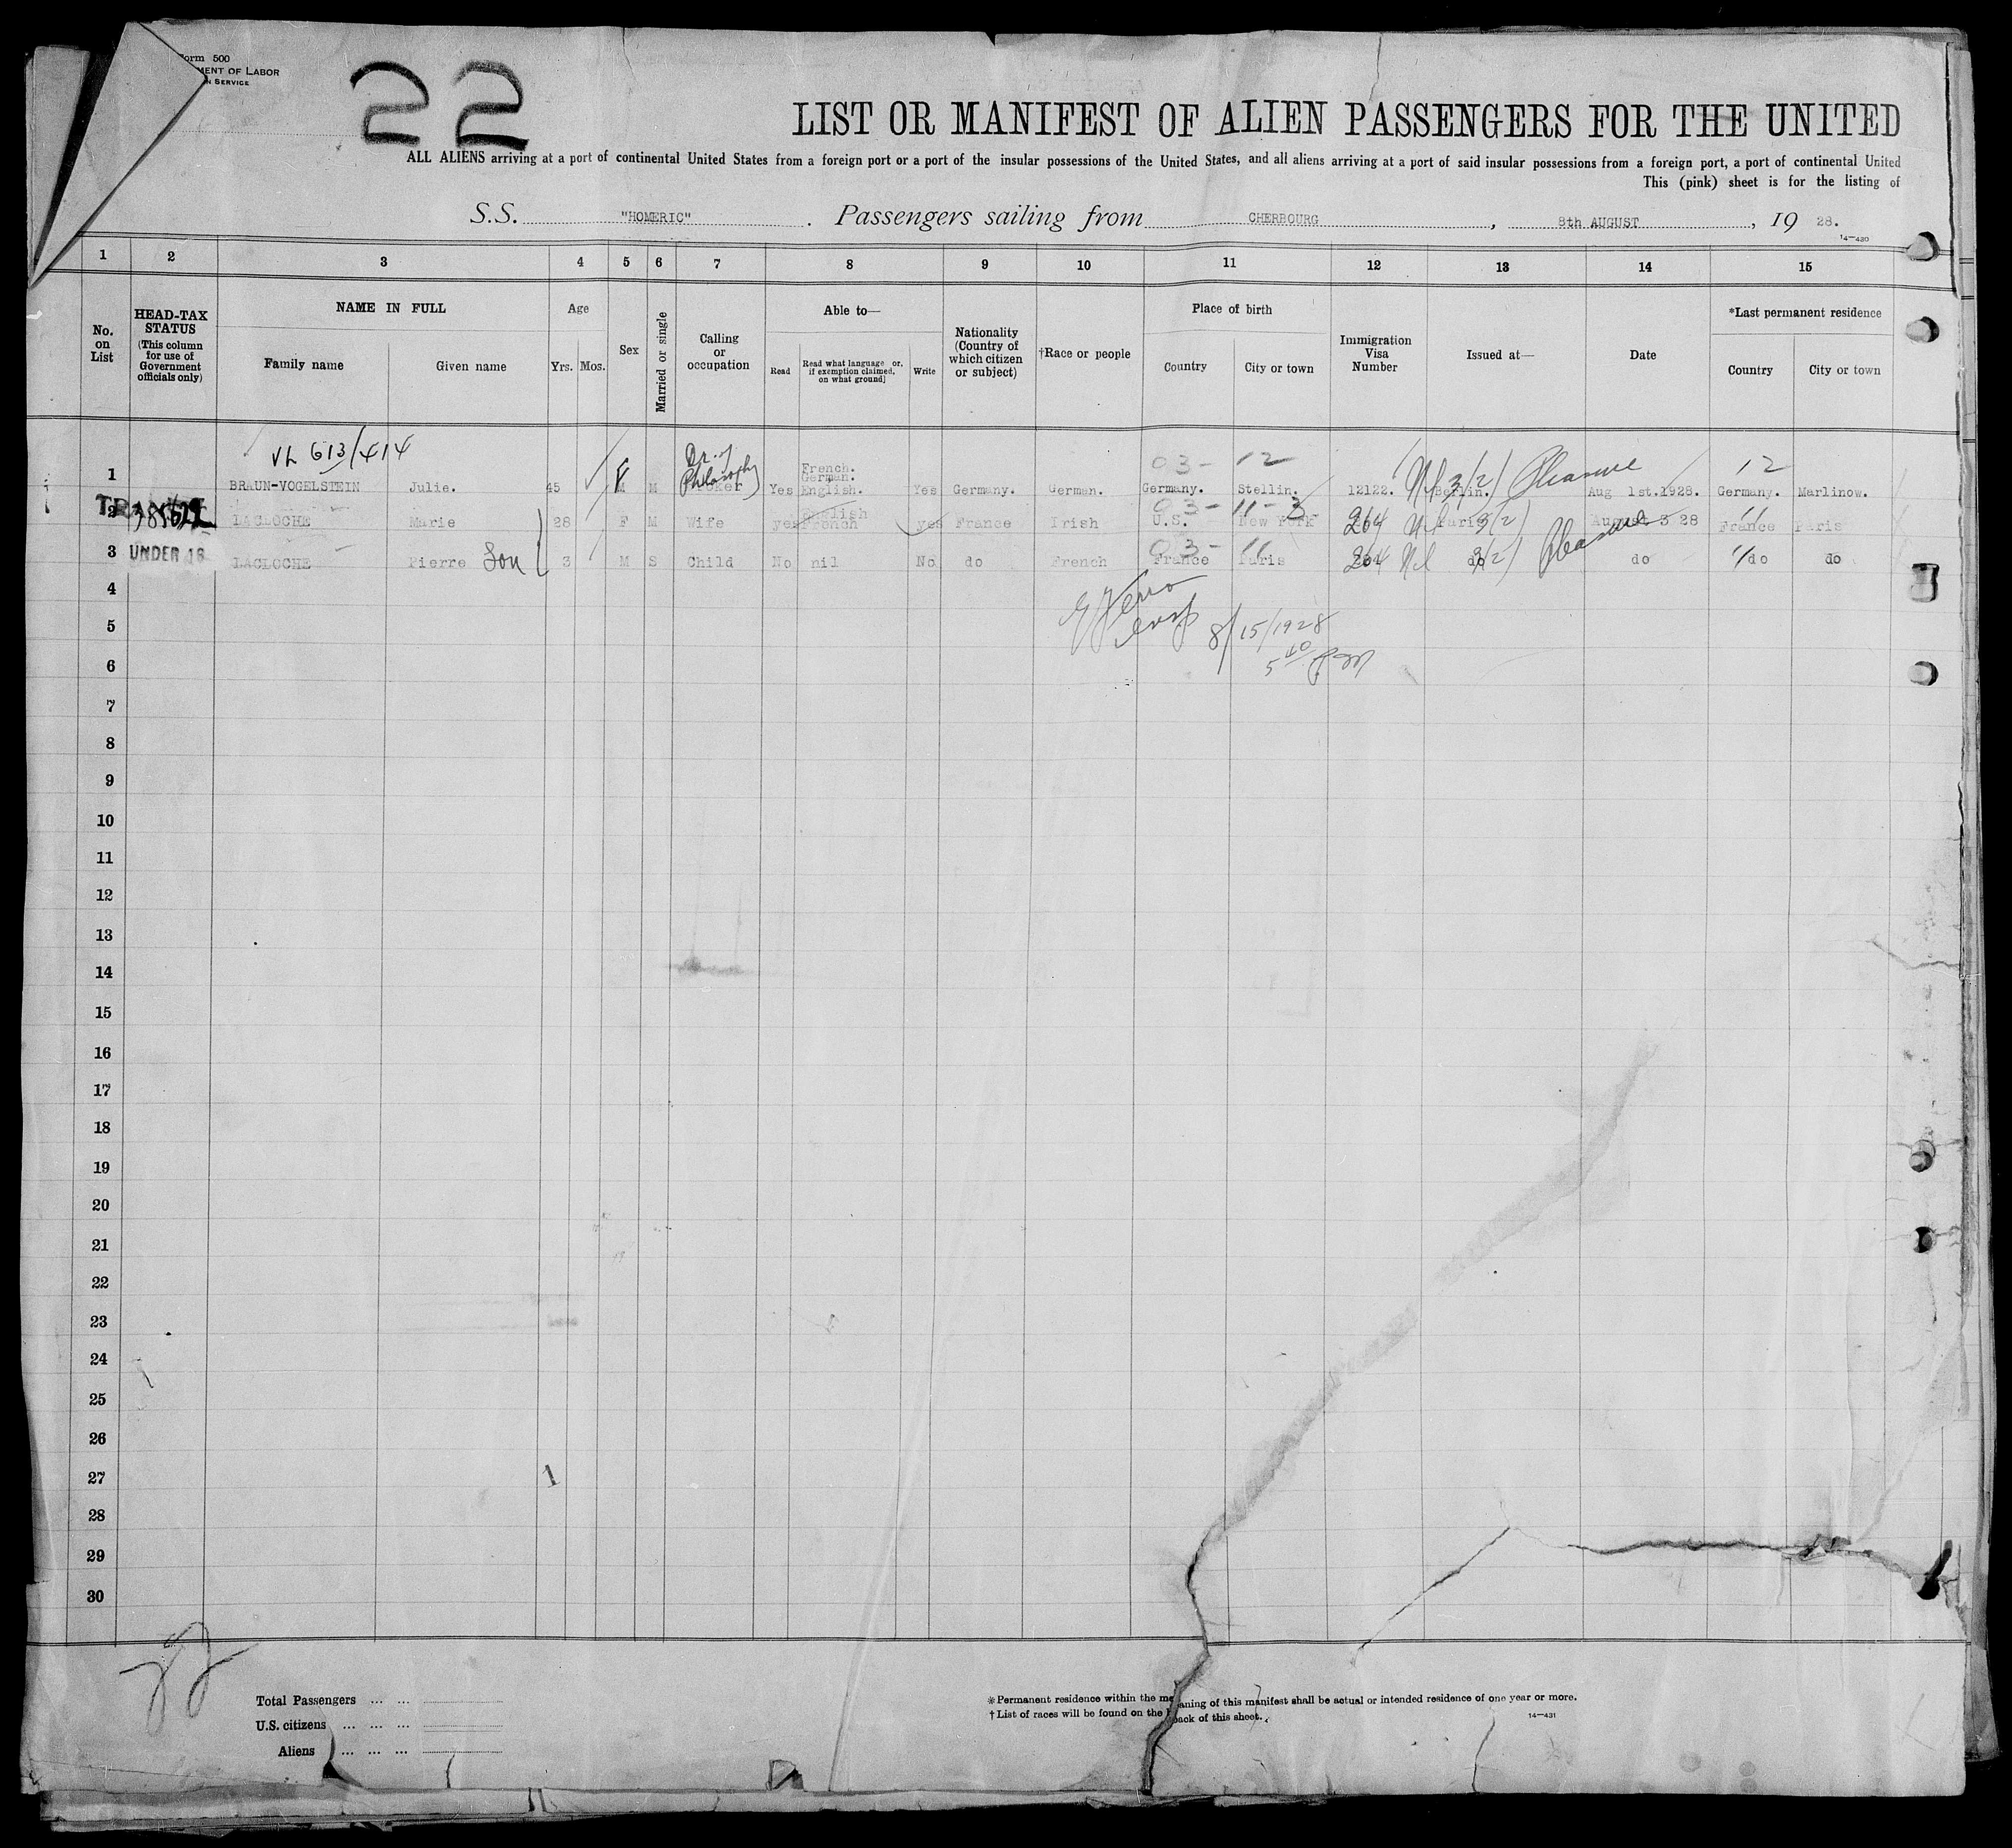 Form 500
MENT OF LABOR
N SERVICE
22
LIST OR MANIFEST OF ALIEN PASSENGERS FOR THE UNITED
ALL ALIENS arriving at a port of continental United States from a foreign port or a port of the insular possessions of the United States, and all aliens arriving at a port of said insular possessions from a foreign port, a port of continental United
This (pink) sheet is for the listing of
S.S. "HOMERIC". Passengers sailing from CHERBOURG, 8th AUGUST, 19 28.
14—430
1 2 3 4 5 6 7 8 9 10 11 12 13 14 15
No. on List
HEAD-TAX STATUS
(This column for use of Government officials only)
NAME IN FULL
Family name Given name
Age
Yrs. Mos.
Sex
Married or single
Calling or occupation
Able to—
Read
Read what language or, if exemption claimed, on what ground]
Write
Nationality (Country of which citizen or subject)
†Race or people
Place of birth
Country City or town
Immigration Visa Number
Issued at—
Date
*Last permanent residence
Country City or town
VL 613/414 Dr. of Philosophy 03- 12 12
1 BRAUN-VOGELSTEIN Julie. 45 F M Yes French. German. English. Yes Germany. German. Germany. Stellin. 12122. Berlin. Pleasure Aug 1st.1928. Germany. Marlinow.
03- 11-3
2 LACLOCHE Marie 28 F M Wife yes English French yes France Irish U.S. New York 264 Paris August 3 28 France Paris
03- 11
3 UNDER 16 LACLOCHE Pierre Son 3 M S Child No nil No do French France Paris 264 do Pleasure do do do
4
5 8/15/1928
6 5 40 PM
7
8
9
10
11
12
13
14
15
16
17
18
19
20
21
22
23
24
25
26
27
28
29
30
Total Passengers ... ...
U.S. citizens ... ... ...
Aliens ... ... ...
*Permanent residence within the meaning of this manifest shall be actual or intended residence of one year or more.
†List of races will be found on the back of this sheet.
14—431